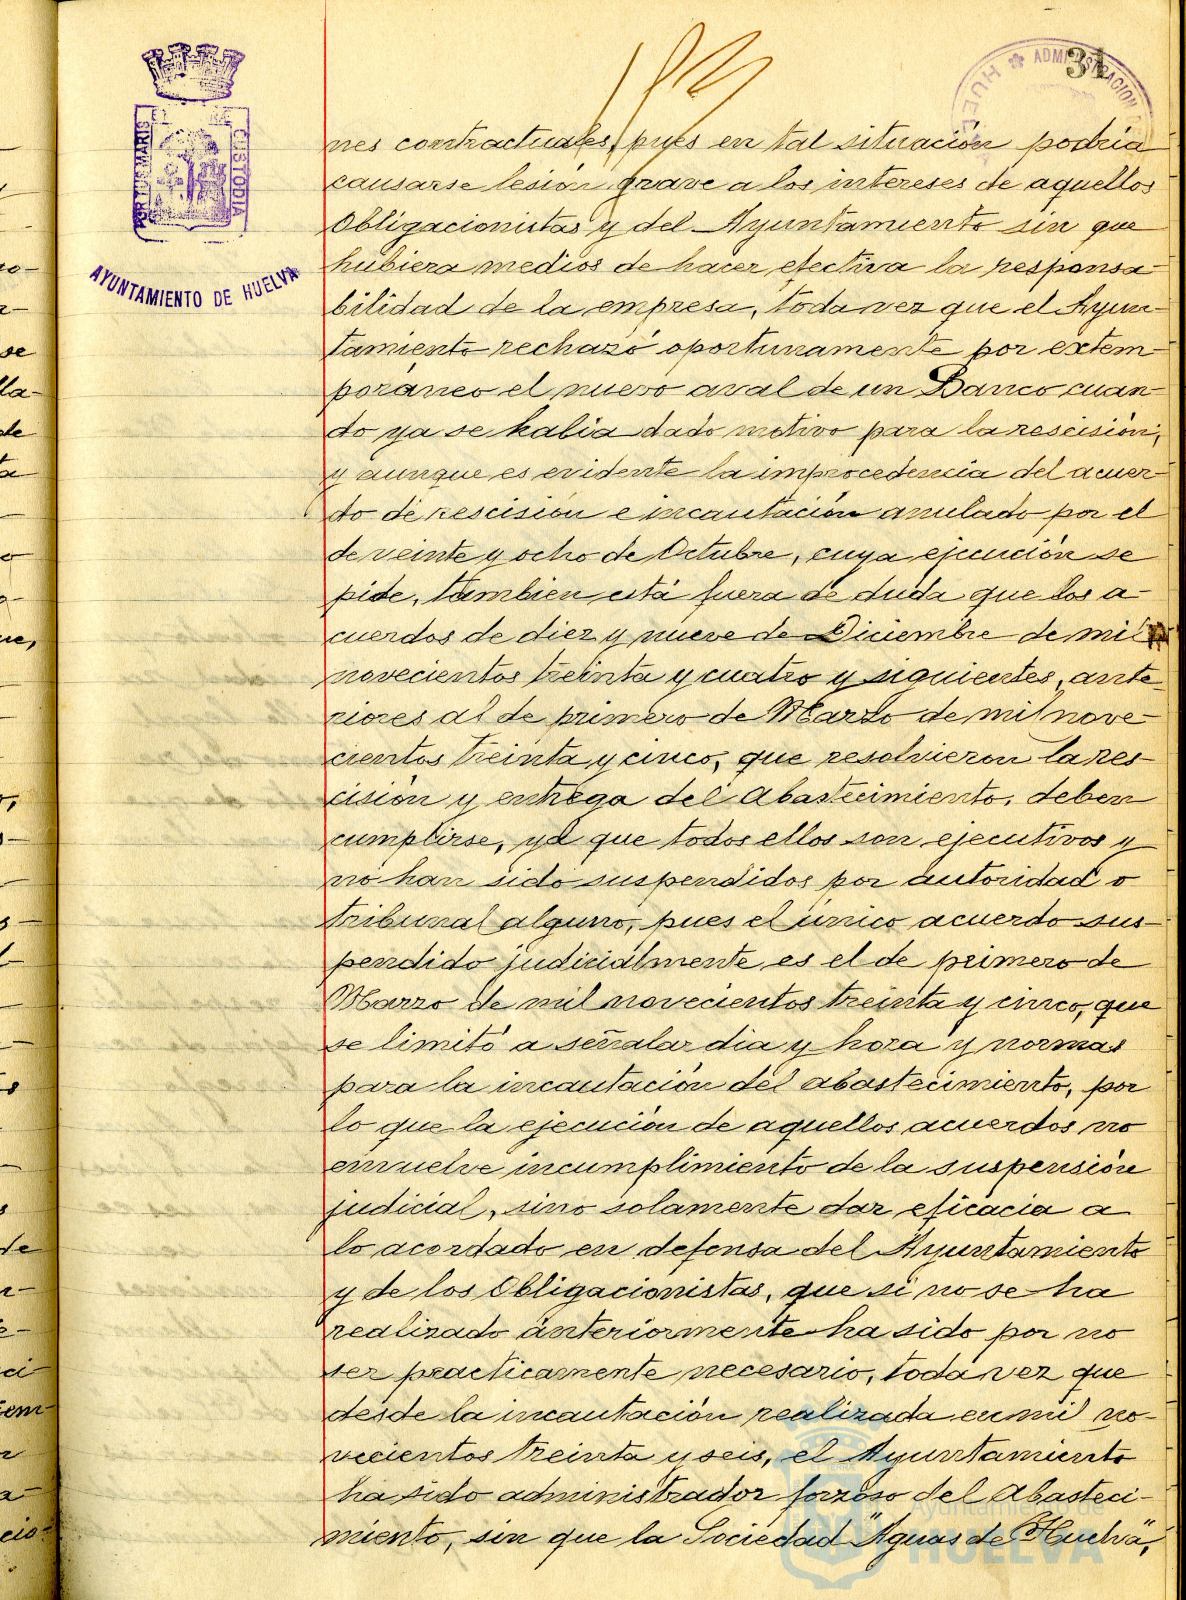 31
ADMINISTRACION
HUEL
PORTUS MARIS
CUSTODIA
AYUNTAMIENTO DE HUELVA
nes contractuales, pues en tal situación podria
causarse lesión grave a los intereses de aquellos
Obligacionistas y del Ayuntamiento sin que
hubiera medios de hacer efectiva la responsa-
bilidad de la empresa, toda vez que el Ayun-
tamiento rechazó oportunamente por extem-
poráneo el nuevo aval de un Banco cuan-
do ya se habia dado motivo para la rescisión,
y aunque es evidente la improcedencia del acuer-
do de rescisión e incautación anulado por el
de veinte y ocho de Octubre, cuya ejecución se
pide, tambien está fuera de duda que los a-
cuerdos de diez y nueve de Diciembre de mil
novecientos treinta y cuatro y siguientes, ante-
riores al de primero de Marzo de mil nove-
cientos treinta y cinco, que resolvieron la res-
cisión y entrega del Abastecimiento, deben
cumplirse, ya que todos ellos son ejecutivos y
no han sido suspendidos por autoridad o
tribunal alguno, pues el único acuerdo sus-
pendido judicialmente es el de primero de
Marzo de mil novecientos treinta y cinco, que
se limitó a señalar dia y hora y normas
para la incautación del abastecimiento, por
lo que la ejecución de aquellos acuerdos no
envuelve incumplimiento de la suspensión
judicial, sino solamente dar eficacia a
lo acordado en defensa del Ayuntamiento
y de los Obligacionistas, que si no se ha
realizado anteriormente ha sido por no
ser practicamente necesario, toda vez que
desde la incautación realizada en mil no-
vecientos treinta y seis, el Ayuntamiento
ha sido administrador forzoso del Abasteci-
miento, sin que la Sociedad "Aguas de Huelva",
Ayuntamiento de
HUELVA